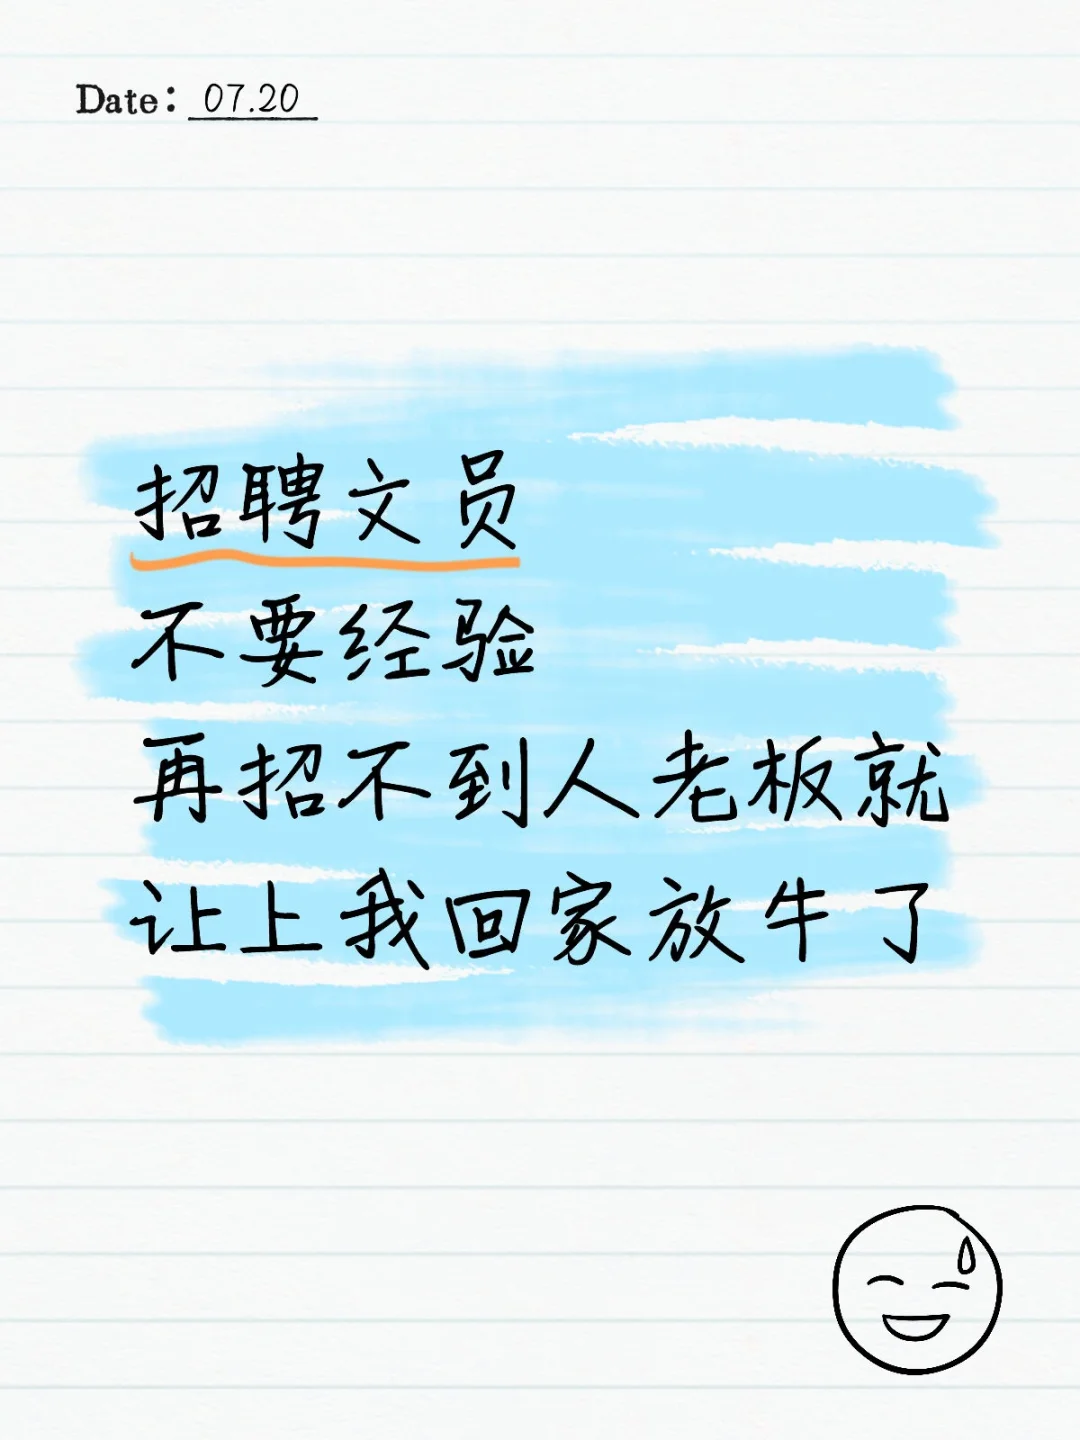 Date: 07.20
招聘文员
不要经验
再招不到人老板就
让上我回家放牛了